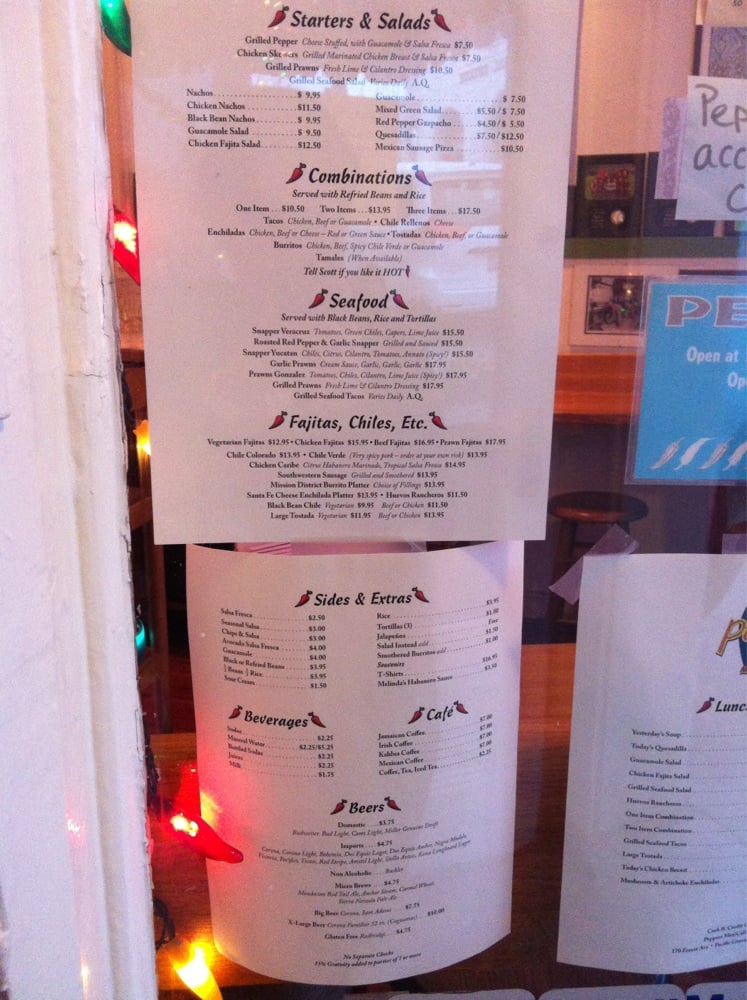 Starters & Salads
Grilled Pepper Cheese Stuffed, with Guacamole & Salsa Fresca $7.50
Chicken Skewers Grilled Marinated Chicken Breast & Salsa Fresca $7.50
Grilled Prawns Fresh Lime & Cilantro Dressing $10.50
Grilled Seafood Salad Varies Daily A.Q.
Nachos $ 9.95
Chicken Nachos $11.50
Black Bean Nachos $ 9.95
Guacamole Salad $ 9.50
Chicken Fajita Salad $12.50
Guacamole $ 7.50
Mixed Green Salad $5.50 / $ 7.50
Red Pepper Gazpacho $4.50 / $ 5.50
Quesadillas $7.50 / $12.50
Mexican Sausage Pizza $10.50
Combinations
Served with Refried Beans and Rice
One Item ... $10.50 Two Items ... $13.95 Three Items ... $17.50
Tacos Chicken, Beef or Guacamole • Chile Rellenos Cheese
Enchiladas Chicken, Beef or Cheese – Red or Green Sauce • Tostadas Chicken, Beef, or Guacamole
Burritos Chicken, Beef, Spicy Chile Verde or Guacamole
Tamales (When Available)
Tell Scott if you like it HOT
Seafood
Served with Black Beans, Rice and Tortillas
Snapper Veracruz Tomatoes, Green Chiles, Capers, Lime Juice $15.50
Roasted Red Pepper & Garlic Snapper Grilled and Sauced $15.50
Snapper Yucatan Chiles, Citrus, Cilantro, Tomatoes, Annato (Spicy!) $15.50
Garlic Prawns Cream Sauce, Garlic, Garlic, Garlic $17.95
Prawns Gonzalez Tomatoes, Chiles, Cilantro, Lime Juice (Spicy!) $17.95
Grilled Prawns Fresh Lime & Cilantro Dressing $17.95
Grilled Seafood Tacos Varies Daily A.Q.
Fajitas, Chiles, Etc.
Vegetarian Fajitas $12.95 • Chicken Fajitas $15.95 • Beef Fajitas $16.95 • Prawn Fajitas $17.95
Chile Colorado $13.95 • Chile Verde (Very spicy pork – order at your own risk) $13.95
Chicken Caribe Citrus Habanero Marinade, Tropical Salsa Fresca $14.95
Southwestern Sausage Grilled and Smothered $13.95
Mission District Burrito Platter Choice of Fillings $13.95
Santa Fe Cheese Enchilada Platter $13.95 • Huevos Rancheros $11.50
Black Bean Chile Vegetarian $9.95 Beef or Chicken $11.50
Large Tostada Vegetarian $11.95 Beef or Chicken $13.95
Sides & Extras
Salsa Fresca $2.50
Seasonal Salsa $3.00
Chips & Salsa $3.00
Avocado Salsa Fresca $4.00
Guacamole $4.00
Black or Refried Beans $3.95
½ Beans ½ Rice $3.95
Sour Cream $1.50
Rice $3.95
Tortillas (3) $1.00
Jalapeños Free
Salad Instead add $1.50
Smothered Burritos add $1.00
Souvenirs
T-Shirts $16.95
Melinda's Habanero Sauce $3.50
Beverages
Sodas $2.25
Mineral Water $2.25/$5.25
Bottled Sodas $2.25
Juices $2.25
Milk $1.75
Café
Jamaican Coffee $7.00
Irish Coffee $7.00
Kahlua Coffee $7.00
Mexican Coffee $7.00
Coffee, Tea, Iced Tea $2.25
Beers
Domestic $3.75
Budweiser, Bud Light, Coors Light, Miller Genuine Draft
Imports $4.75
Corona, Corona Light, Bohemia, Dos Equis Lager, Dos Equis Amber, Negra Modelo,
Victoria, Pacifico, Tecate, Red Stripe, Amstel Light, Stella Artois, Kona Longboard Lager
Non Alcoholic Buckler
Micro Brews $4.75
Mendocino Red Tail Ale, Anchor Steam, Carmel Wheat,
Sierra Nevada Pale Ale
Big Beer Corona, Sam Adams $7.75
X-Large Beer Corona Familiar 32 oz. (Caguamas) $10.00
Gluten Free Redbridge $4.75
No Separate Checks
15% Gratuity added to parties of 5 or more
Pep
acc
C
PE
Open at
Op
Lunc
Yesterday's Soup
Today's Quesadilla
Guacamole Salad
Chicken Fajita Salad
Grilled Seafood Salad
Huevos Rancheros
One Item Combination
Two Item Combination
Grilled Seafood Tacos
Large Tostada
Today's Chicken Breast
Mushroom & Artichoke Enchiladas
Cash & Credit C
170 Forest Ave • Pacific Grove